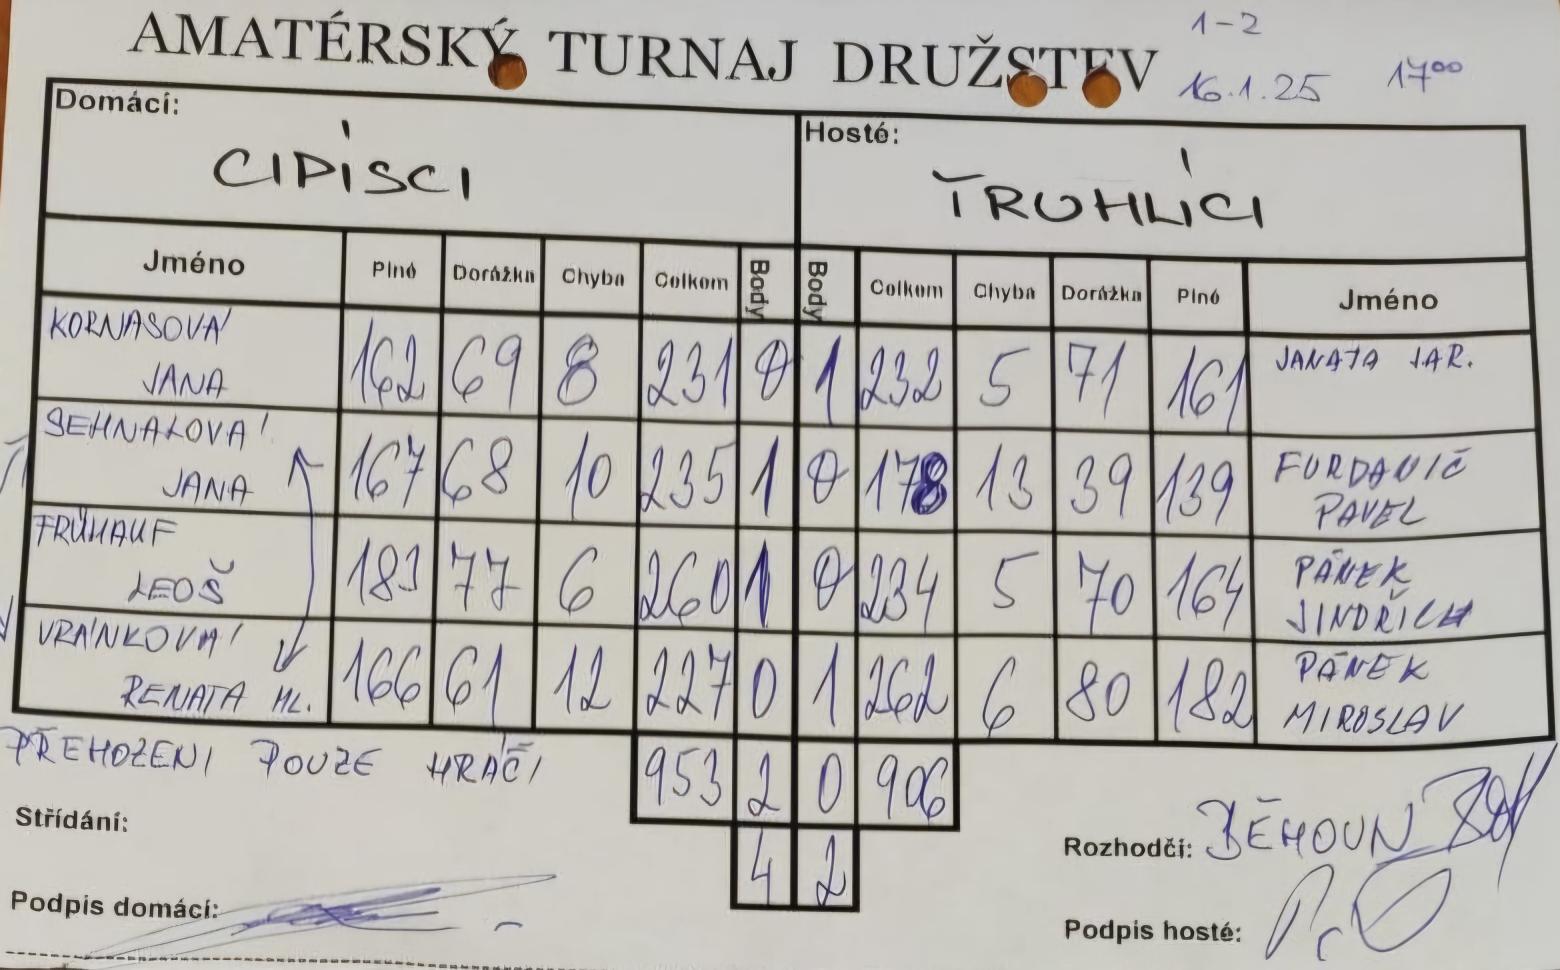 AMATÉRSKÝ TURNAJ DRUŽSTEV
1-2
16.1.25 17⁰⁰
Domácí: CIPÍSCI
Hosté: TRUHLÍCI
Jméno Plné Dorážka Chyba Colkom Body Body Colkom Chyba Dorážka Plné Jméno
KORNASOVÁ JANA 162 69 8 231 0 1 232 5 71 161 JANATA JAR.
SEHNALOVÁ JANA 167 68 10 235 1 0 178 13 39 139 FURDANIČ PAVEL
FRÜHAUF LEOŠ 183 77 6 260 1 0 234 5 70 164 PÁNEK JINDŘICH
VRÁNKOVÁ RENATA ML. 166 61 12 227 0 1 262 6 80 182 PÁNEK MIROSLAV
PŘEHOZENI POUZE HRÁČI 953 2 0 906
4 2
Střídání:
Rozhodčí: BĚHOUN
Podpis domácí:
Podpis hosté: